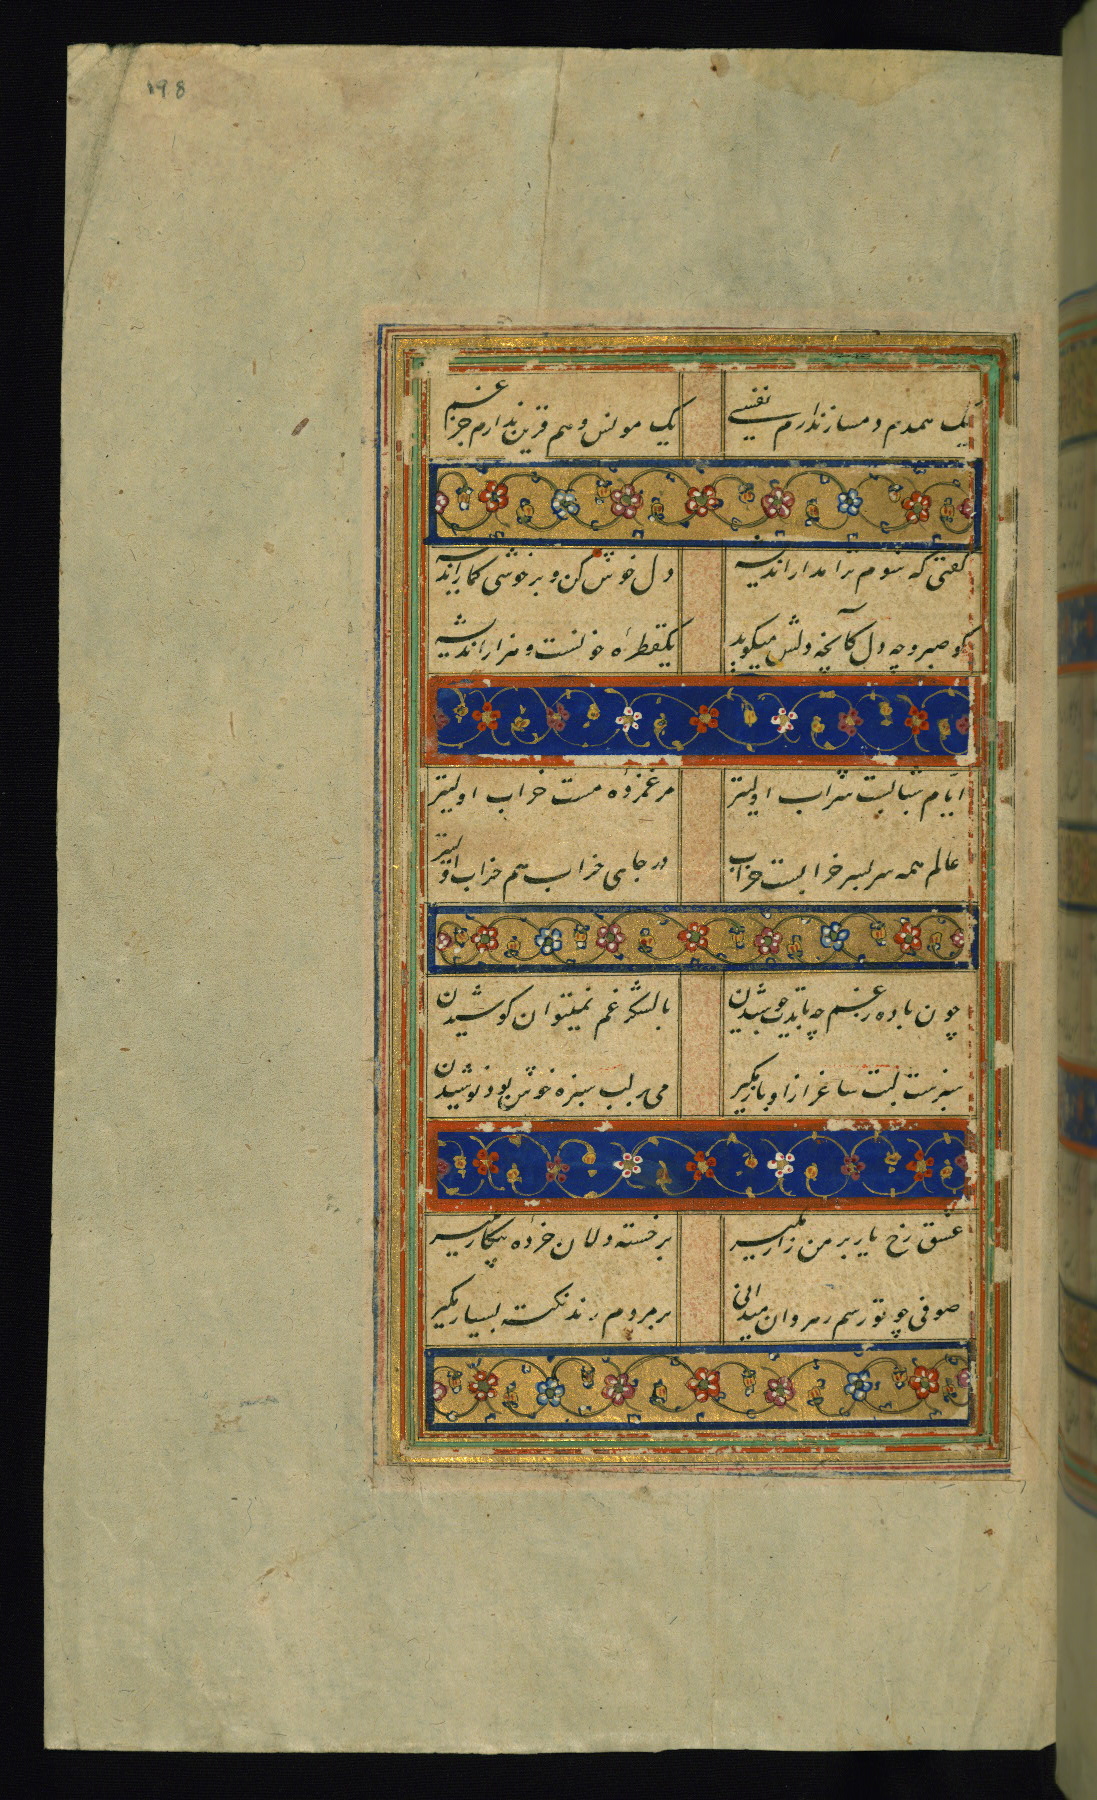 198
یک همدم دمساز ندارم نفسی یک مونس و هم قرین ندارم جز غم
گفتی که شوم ترا مدار اندیشه دل خوش کن و بر خوشی گمار اندیشه
کو صبر و چه دل کآنچه دلش میگوید یکقطرهٔ خونست و هزار اندیشه
ایام شبابست شراب اولیتر هر غمزدهٔ مست خراب اولیتر
عالم همه سر بسر خرابست خراب در جای خراب هم خراب اولیتر
چون باده ز غم چه بایدت جوشیدن با لشکر غم نمیتوان کوشیدن
سبزست لبت ساغر ازو باز مگیر می بر لب سبزه خوش بود نوشیدن
عشق رخ یار بر من زار مگیر بر خسته دلان خرده بیکبار مگیر
صوفی چو تو رسم رهروان میدانی بر مردم رند نکته بسیار مگیر